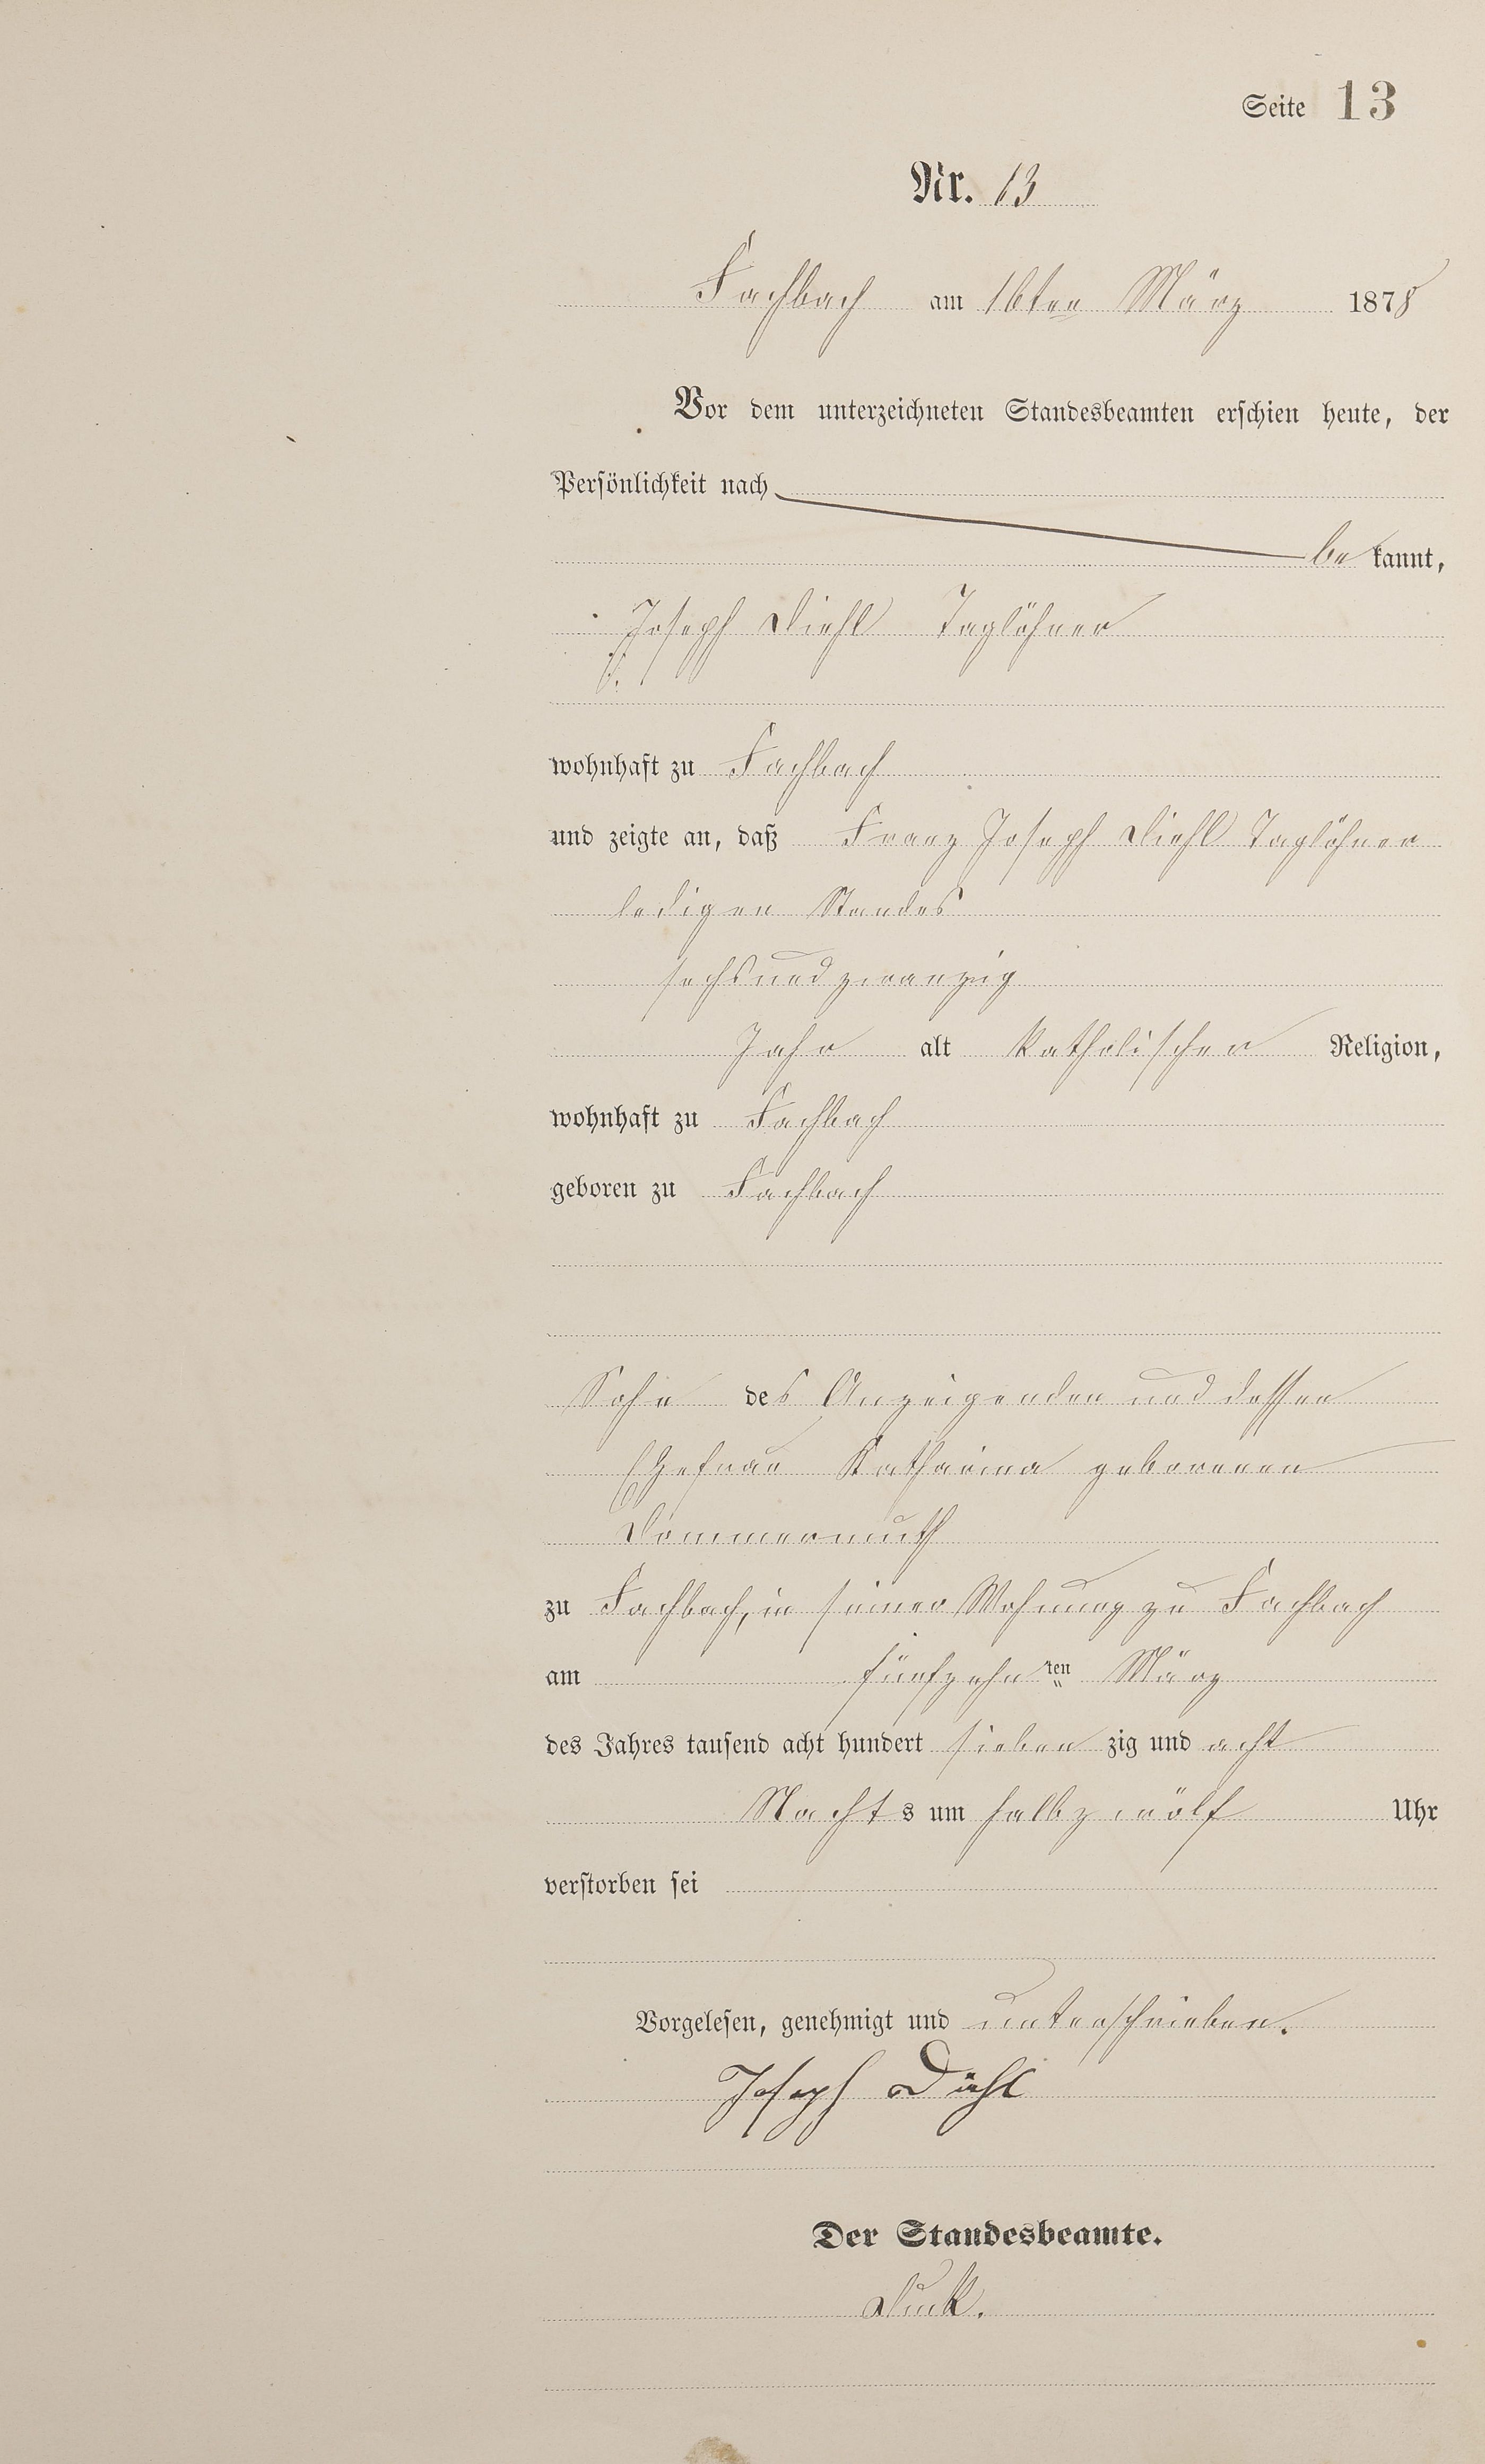 Seite 13
Nr. 13
Fachbach am 16ten März 1878
Vor dem unterzeichneten Standesbeamten erschien heute, der
Persönlichkeit nach
be kannt,
Joseph Diehl Taglöhner
wohnhaft zu Fachbach
und zeigte an, daß Franz Joseph Diehl Taglöhner
ledigen Standes
sechsundzwanzig
Jahr alt katholischer Religion,
wohnhaft zu Fachbach
geboren zu Fachbach
Sohn des Anzeigenden und dessen
Ehefrau Katharina geborenen
Dommermuth
zu Fachbach, in seiner Wohnung zu Fachbach
am fünfzehnten März
des Jahres tausend acht hundert sieben zig und acht
Nachts um halbzwölf Uhr
verstorben sei
Vorgelesen, genehmigt und unterschrieben.
Joseph Diehl
Der Standesbeamte.